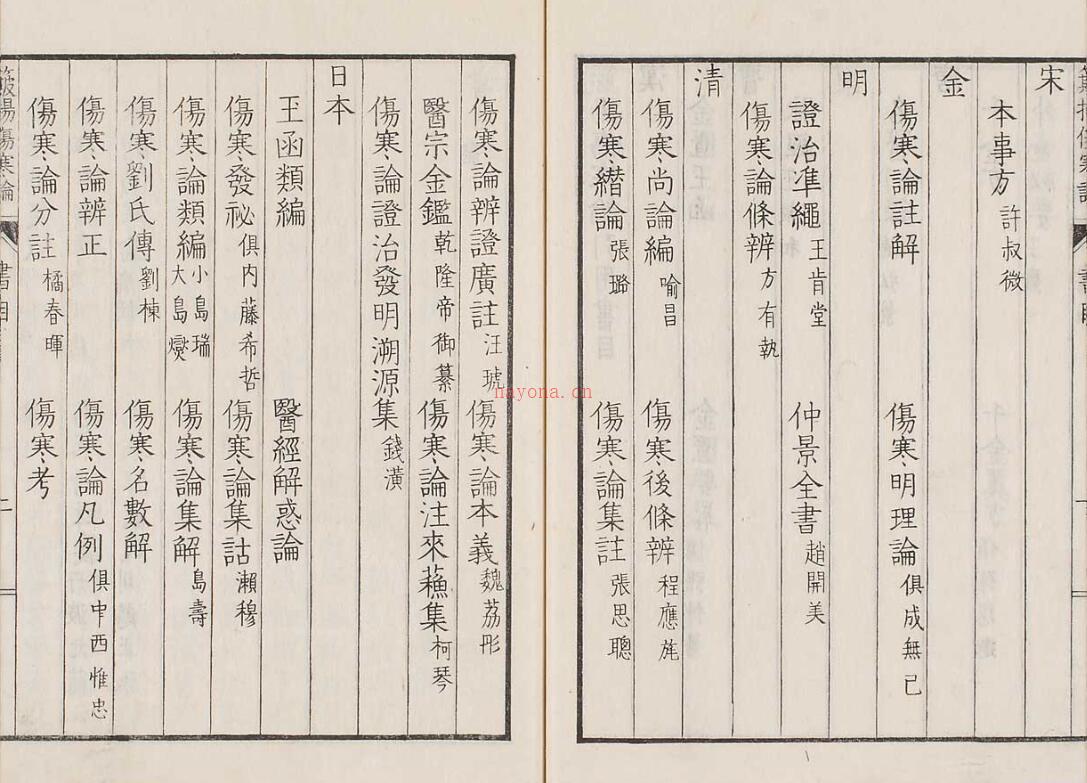 宋
本事方 許叔微
金
傷寒論註解 傷寒明理論 俱成無己
明
證治準繩 王肯堂 仲景全書 趙開美
傷寒論條辨 方有執
清
傷寒尚論編 喻昌 傷寒後條辨 程應旄
傷寒纘論 張璐 傷寒論集註 張思聰
傷寒論辨證廣註 汪琥 傷寒論本義 魏荔彤
醫宗金鑑 乾隆帝御纂 傷寒論注來蘓集 柯琴
傷寒論證治發明溯源集 錢潢
日本
玉函類編 醫經解惑論
傷寒發祕 俱内藤希哲 傷寒論集詁 瀨穆
傷寒論類編 小島瑞 大島爕 傷寒論集解 島壽
傷寒劉氏傳 劉棟 傷寒名數解
傷寒論辨正 傷寒論凡例 俱中西惟忠
傷寒論分註 橘春暉 傷寒考
傷寒論
nayona.cn